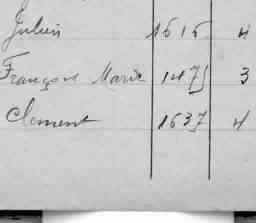 Julien 1515 4
François Marie 1475 3
Clement 1637 4